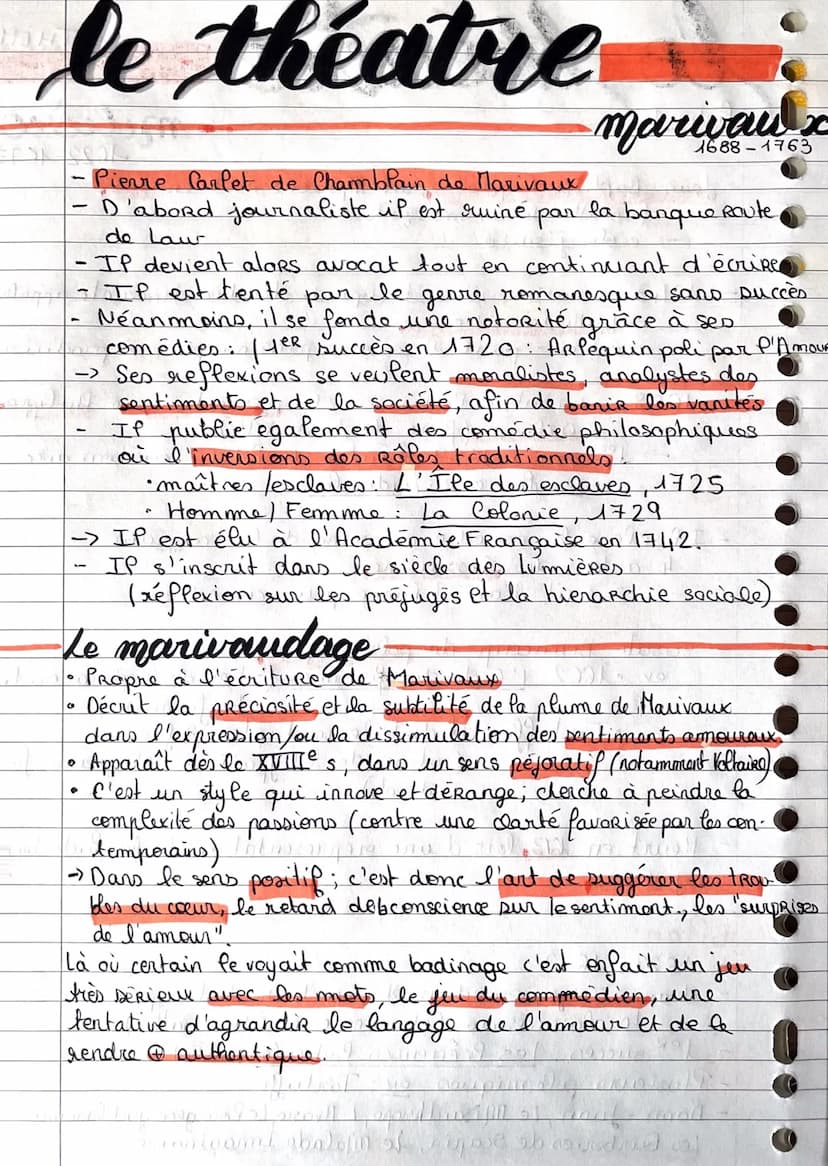 le théatre
marivaux
1688-1763
- Pierre Carlet de Chamblain de Marivaux
- D'abord journaliste il est ruiné par la banqueroute
de Law
- Il devient alors avocat tout en continuant d'écrire
- Il est tenté par le genre romanesque sans succès
- Néanmoins, il se fonde une notorité grâce à ses
comédies : (1er succès en 1720 : Arlequin poli par l'Amour
-> Ses reflexions se veulent moralistes, analystes des
sentiments et de la société, afin de banir les vanités
- Il publie également des comédie philosophiques
où l'inversions des rôles traditionnels :
• maîtres / esclaves : L'Île des esclaves, 1725
• Homme / Femme : La Colonie, 1729
-> Il est élu à l'Académie Française en 1742.
- Il s'inscrit dans le siècle des Lumières
(réflexion sur les préjugés et la hierarchie sociale)
Le marivaudage
• Propre à l'écriture de Marivaux
• Décrit la préciosité et la subtilité de la plume de Marivaux
dans l'expression/ou la dissimulation des sentiments amoureux
• Apparaît dès le XVIIIe s, dans un sens péjoratif (notamment Voltaire)
• C'est un style qui innove et dérange ; cherche à peindre la
complexité des passions (contre une clarté favorisée par les con-
temporains)
-> Dans le sens positif ; c'est donc l'art de suggérer les trou
bles du cœur, le retard de conscience sur le sentiment, les "surprises
de l'amour".
Là où certain le voyait comme badinage c'est enfait un jeu
très sérieux avec les mots, le jeu du commédien, une
tentative d'agrandir le langage de l'amour et de le
rendre ⊕ authentique.